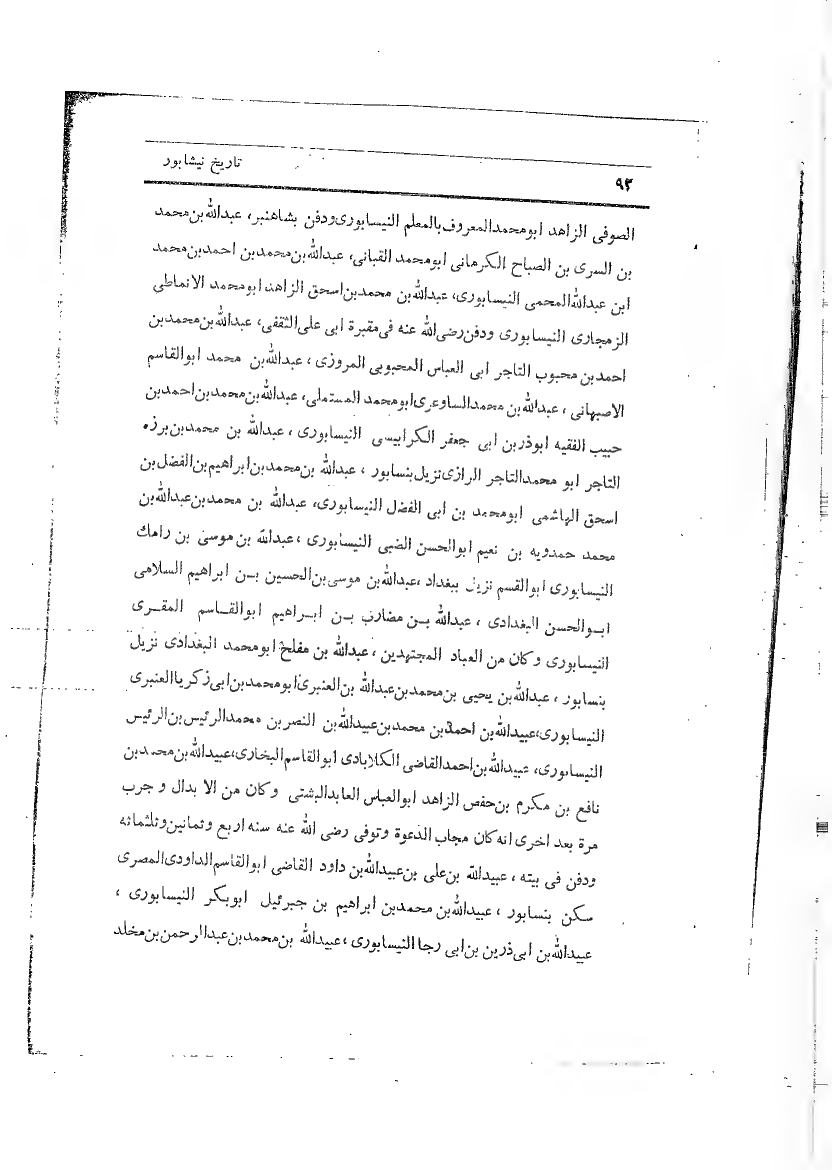 تاریخ نیشابور
۹۳
الصوفی الزاهد ابومحمدالمعروف بالمعلم النیسابوری ودفن بشاهنبر، عبدالله بن محمد
بن السری بن الصباح الکرمانی ابومحمد القبانی، عبدالله بن محمد بن احمد بن محمد
ابن عبدالله المحمی النیسابوری، عبدالله بن محمد بن اسحق الزاهد ابومحمد الانماطی
الزمجاری النیسابوری ودفن رضی الله عنه فی مقبرة ابی علی الثقفی، عبدالله بن محمد بن
احمد بن محبوب التاجر ابی العباس المحبوبی المروزی ، عبدالله بن محمد ابوالقاسم
الاصبهانی ، عبدالله بن محمد الساوعری ابومحمد المستملی، عبدالله بن محمد بن احمد بن
حبیب الفقیه ابوذر بن ابی جعفر الکرابیسی النیسابوری ، عبدالله بن محمد بن برزه
التاجر ابو محمد التاجر الرازی نزیل بنسابور ، عبدالله بن محمد بن ابراهیم بن الفضل بن
اسحق الهاشمی ابومحمد بن ابی الفضل النیسابوری، عبدالله بن محمد بن عبدالله بن
محمد حمدویه بن نعیم ابوالحسن الضبی النیسابوری ، عبدالله بن موسی بن رامك
النیسابوری ابوالقسم نزیل ببغداد ، عبدالله بن موسی بن الحسین بن ابراهیم السلامی
ابوالحسن البغدادی ، عبدالله بن مضارب بن ابراهیم ابوالقاسم المقری
النیسابوری وکان من العباد المجتهدین ، عبدالله بن مفلح ابومحمد البغدادی نزیل
بنسابور ، عبدالله بن یحیی بن محمد بن عبدالله بن العنبری ابومحمد بن ابی زکریا العنبری
النیسابوری، عبیدالله بن احمد بن محمد بن عبیدالله بن النصر بن محمد الرئیس بن الرئیس
النیسابوری، عبیدالله بن احمد القاضی الکلابادی ابوالقاسم البخاری، عبیدالله بن محمد بن
نافع بن مکرم بن حفص الزاهد ابوالعباس العابد البشتی وکان من الابدال و جرب
مرة بعد اخری انه کان مجاب الدعوة وتوفی رضی الله عنه سنه اربع وثمانین وثلثمائه
ودفن فی بیته ، عبیدالله بن علی بن عبیدالله بن داود القاضی ابوالقاسم الداودی المصری
سکن بنسابور ، عبیدالله بن محمد بن ابراهیم بن جبرئیل ابوبکر النیسابوری ،
عبیدالله بن ابی ذرین بن ابی رجا النیسابوری ، عبیدالله بن محمد بن عبدالرحمن بن مخلد